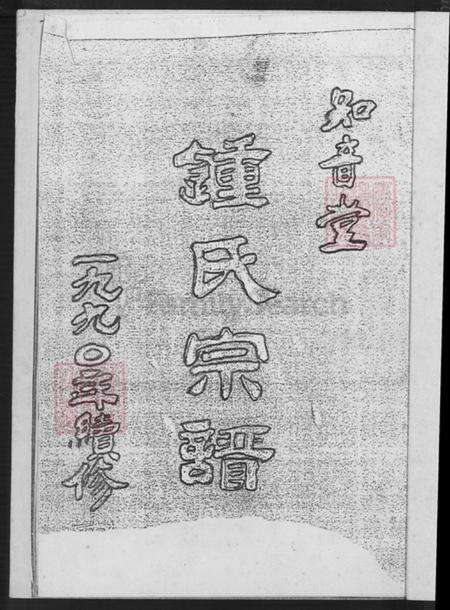 知音堂
鍾氏宗譜
一九九〇年續修
FamilySearch